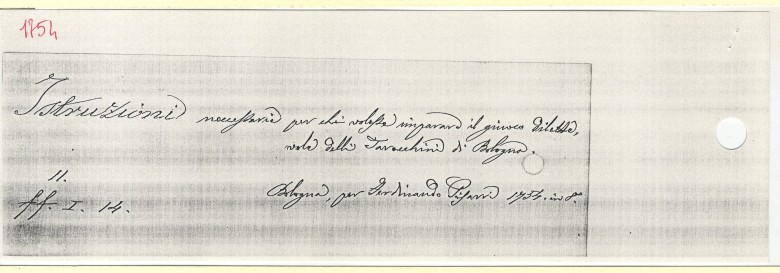 1754
Istruzioni necessarie per chi volesse imparare il giuoco diletте,
vole delli Tarocchini di Bologna.
11.
ff. I. 14.
Bologna, per Ferdinando Pisarri 1754. in 8.°